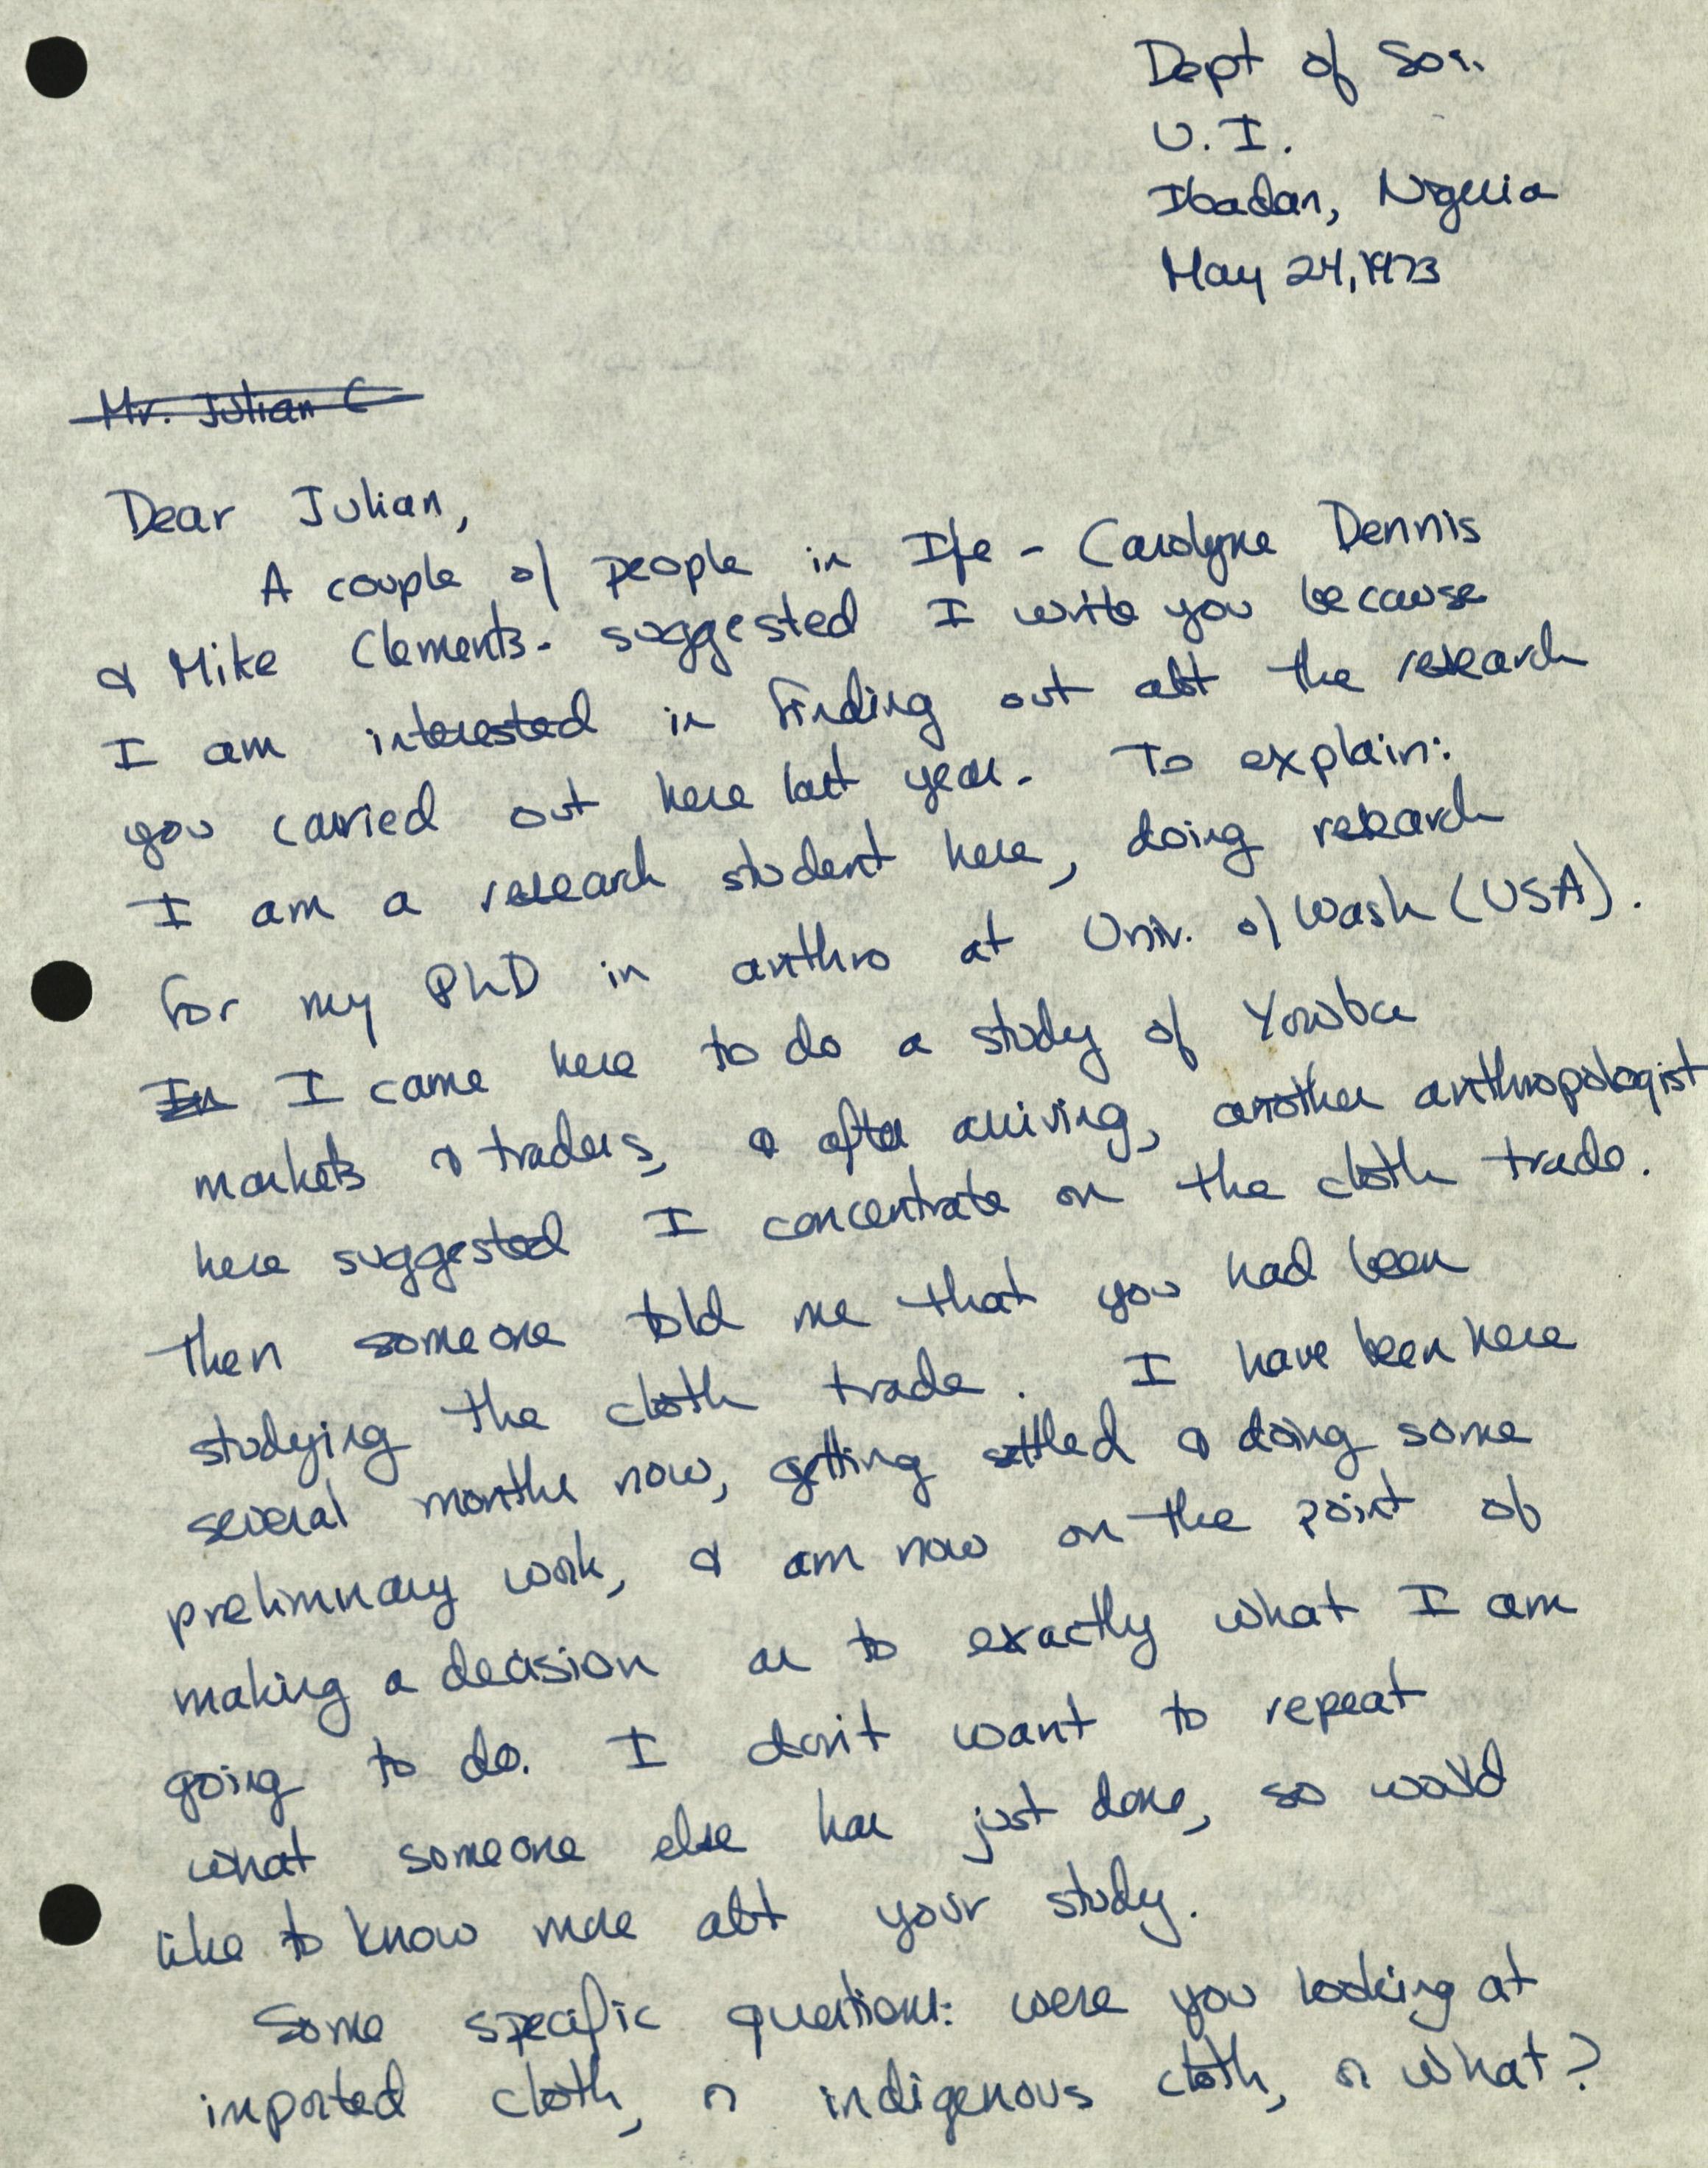 Dept of Soc.
U.I.
Ibadan, Nigeria
May 24, 1973
Mr. Julian C
Dear Julian,
A couple of people in Ife - Carolyne Dennis
& Mike Clements - suggested I write you because
I am interested in finding out abt the research
you carried out here last year. To explain:
I am a research student here, doing research
for my PhD in anthro at Univ. of Wash (USA).
In I came here to do a study of Yoruba
markets & traders, & after arriving, another anthropologist
here suggested I concentrate on the cloth trade.
Then someone told me that you had been
studying the cloth trade. I have been here
several months now, getting settled & doing some
prelimnary work, & am now on the point of
making a decision as to exactly what I am
going to do. I don't want to repeat
what someone else has just done, so would
like to know more abt your study.
Some specific questions: were you looking at
imported cloth, or indigenous cloth, or what?